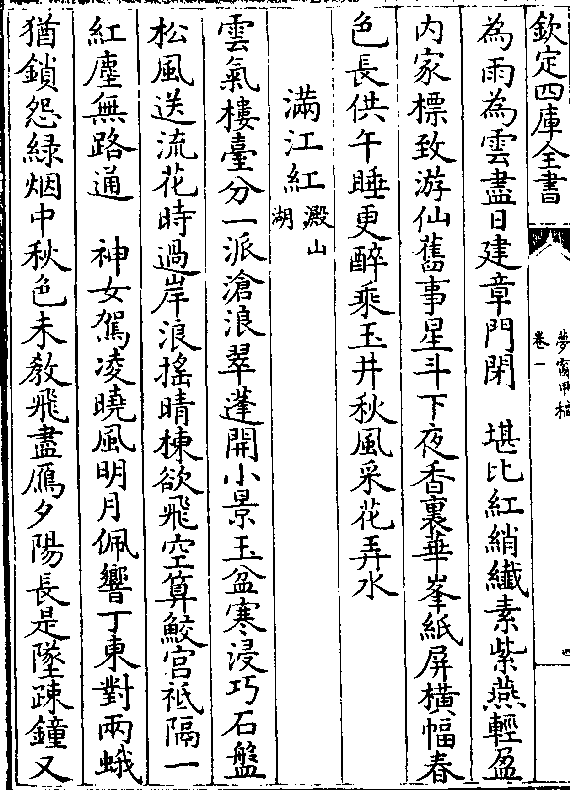 欽定四庫全書
為雨為雲盡日建章門閉　堪比紅綃纖素紫燕輕盈
内家標致游仙舊事星斗下夜香裏華峯紙屏横幅春
色長供午睡更醉乘玉井秋風采花弄水
滿江紅澱山湖
雲氣樓臺分一派滄浪翠蓬開小景玉盆寒浸巧石盤
松風送流花時過岸浪摇晴棟欲飛空算鮫宫祗隔一
紅塵無路通　神女駕凌曉風明月佩響丁東對兩蛾
猶鎖怨緑烟中秋色未教飛盡鴈夕陽長是墜疎鐘又
卷一